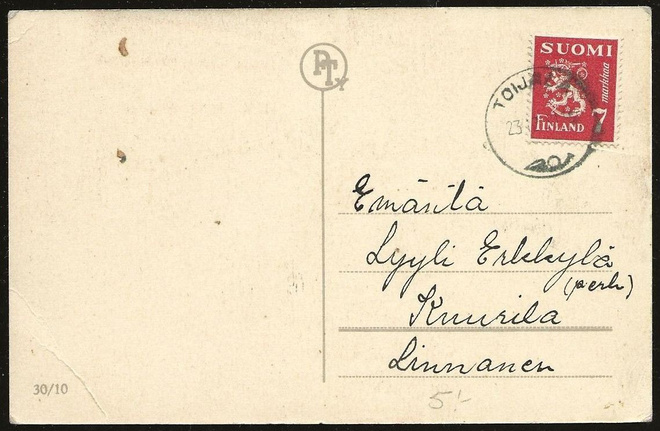 PT
SUOMI
markkaa
FINLAND 7
TOIJALA
23
Emäntä
Lyyli Erkkylä
(perh)
Kuurila
Linnanen
30/10
5:-